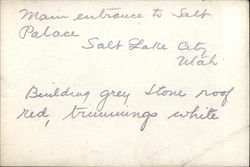 Main entrance to Salt
Palace
Salt Lake City
Utah
Building grey stone roof
red, trimmings white